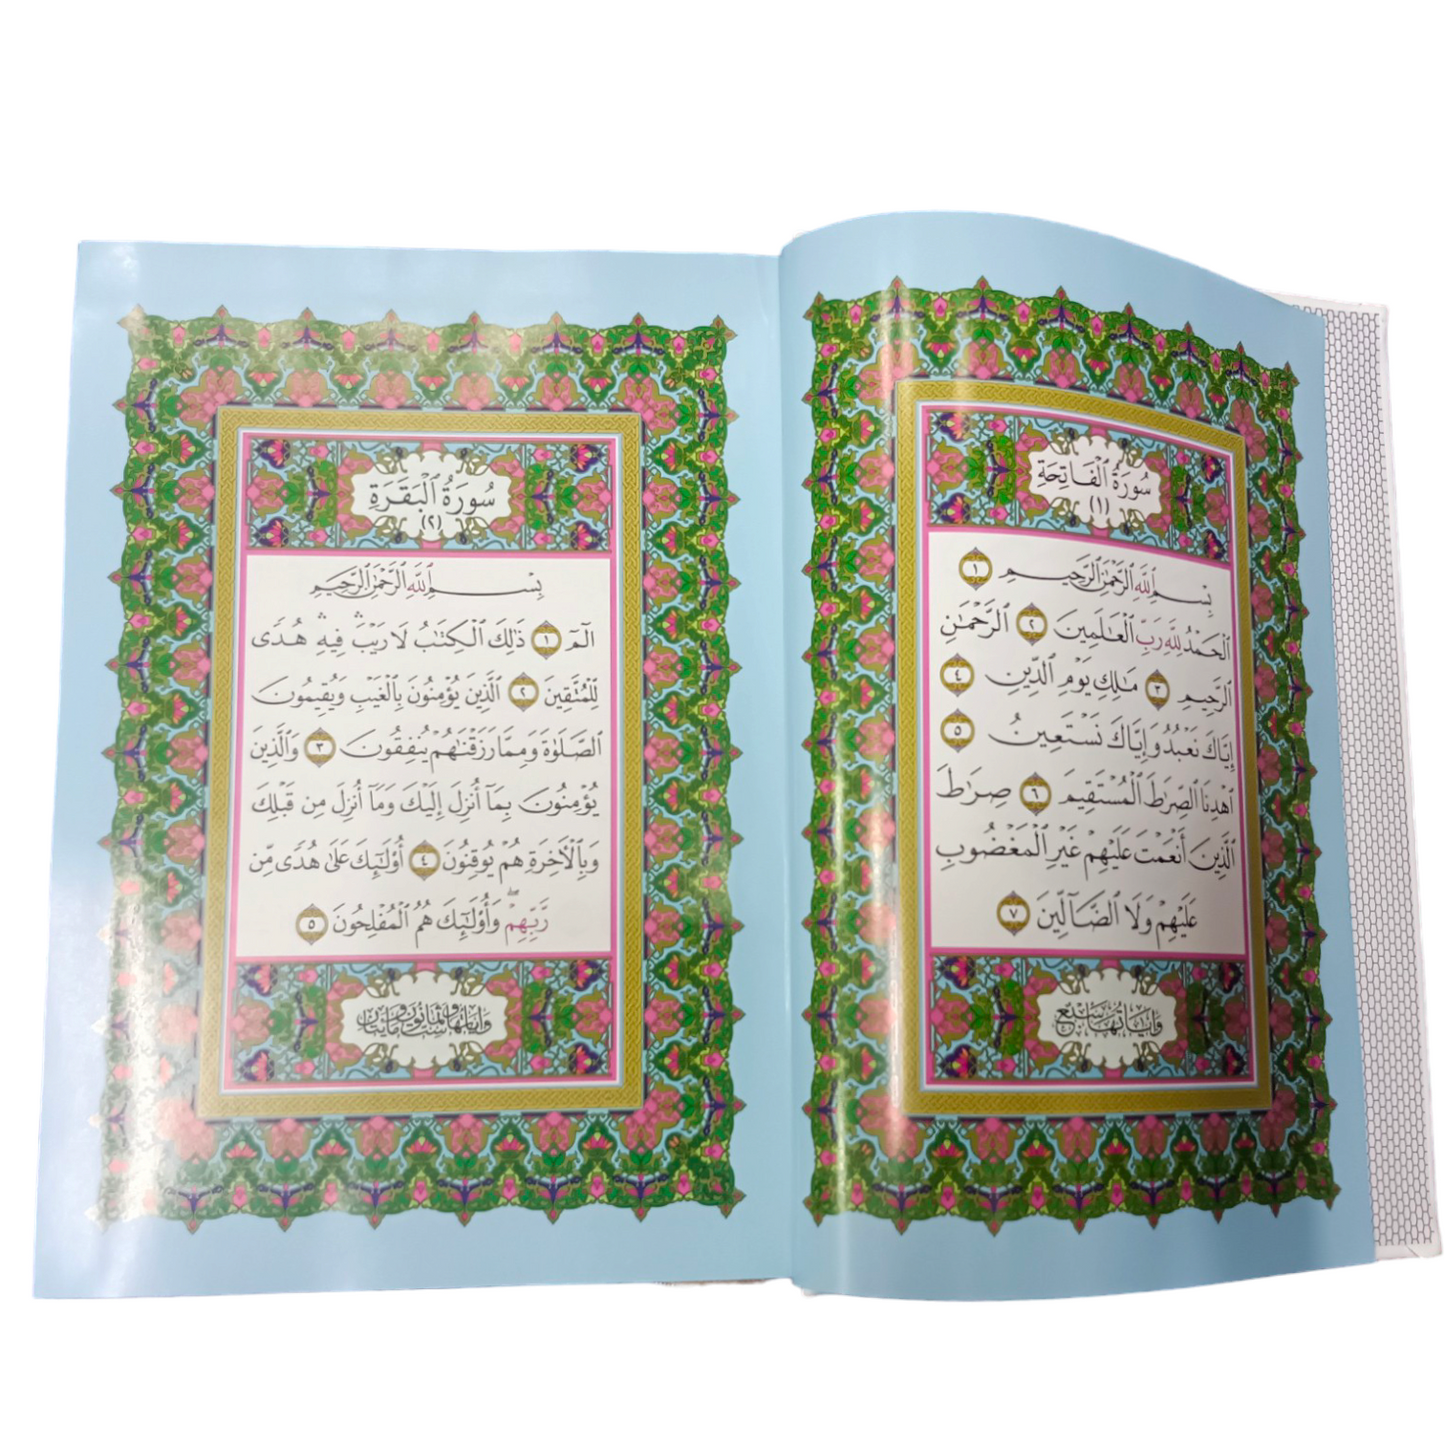 سُورَةُ ٱلْفَاتِحَةِ
(١)
بِسْمِ ٱللَّهِ ٱلرَّحْمَٰنِ ٱلرَّحِيمِ ١
ٱلْحَمْدُ لِلَّهِ رَبِّ ٱلْعَٰلَمِينَ ٢ ٱلرَّحْمَٰنِ
ٱلرَّحِيمِ ٣ مَٰلِكِ يَوْمِ ٱلدِّينِ ٤
إِيَّاكَ نَعْبُدُ وَإِيَّاكَ نَسْتَعِينُ ٥
ٱهْدِنَا ٱلصِّرَٰطَ ٱلْمُسْتَقِيمَ ٦ صِرَٰطَ
ٱلَّذِينَ أَنْعَمْتَ عَلَيْهِمْ غَيْرِ ٱلْمَغْضُوبِ
عَلَيْهِمْ وَلَا ٱلضَّآلِّينَ ٧
وَآيَاتُهَا سَبْعٌ
سُورَةُ ٱلْبَقَرَةِ
(٢)
بِسْمِ ٱللَّهِ ٱلرَّحْمَٰنِ ٱلرَّحِيمِ
الٓمٓ ١ ذَٰلِكَ ٱلْكِتَٰبُ لَا رَيْبَۛ فِيهِۛ هُدًى
لِّلْمُتَّقِينَ ٢ ٱلَّذِينَ يُؤْمِنُونَ بِٱلْغَيْبِ وَيُقِيمُونَ
ٱلصَّلَوٰةَ وَمِمَّا رَزَقْنَٰهُمْ يُنفِقُونَ ٣ وَٱلَّذِينَ
يُؤْمِنُونَ بِمَآ أُنزِلَ إِلَيْكَ وَمَآ أُنزِلَ مِن قَبْلِكَ
وَبِٱلْأَخِرَةِ هُمْ يُوقِنُونَ ٤ أُو۟لَٰٓئِكَ عَلَىٰ هُدًى مِّن
رَّبِّهِمْۖ وَأُو۟لَٰٓئِكَ هُمُ ٱلْمُفْلِحُونَ ٥
وَآيَاتُهَا سِتٌّ وَثَمَانُونَ وَمِائَتَانِ